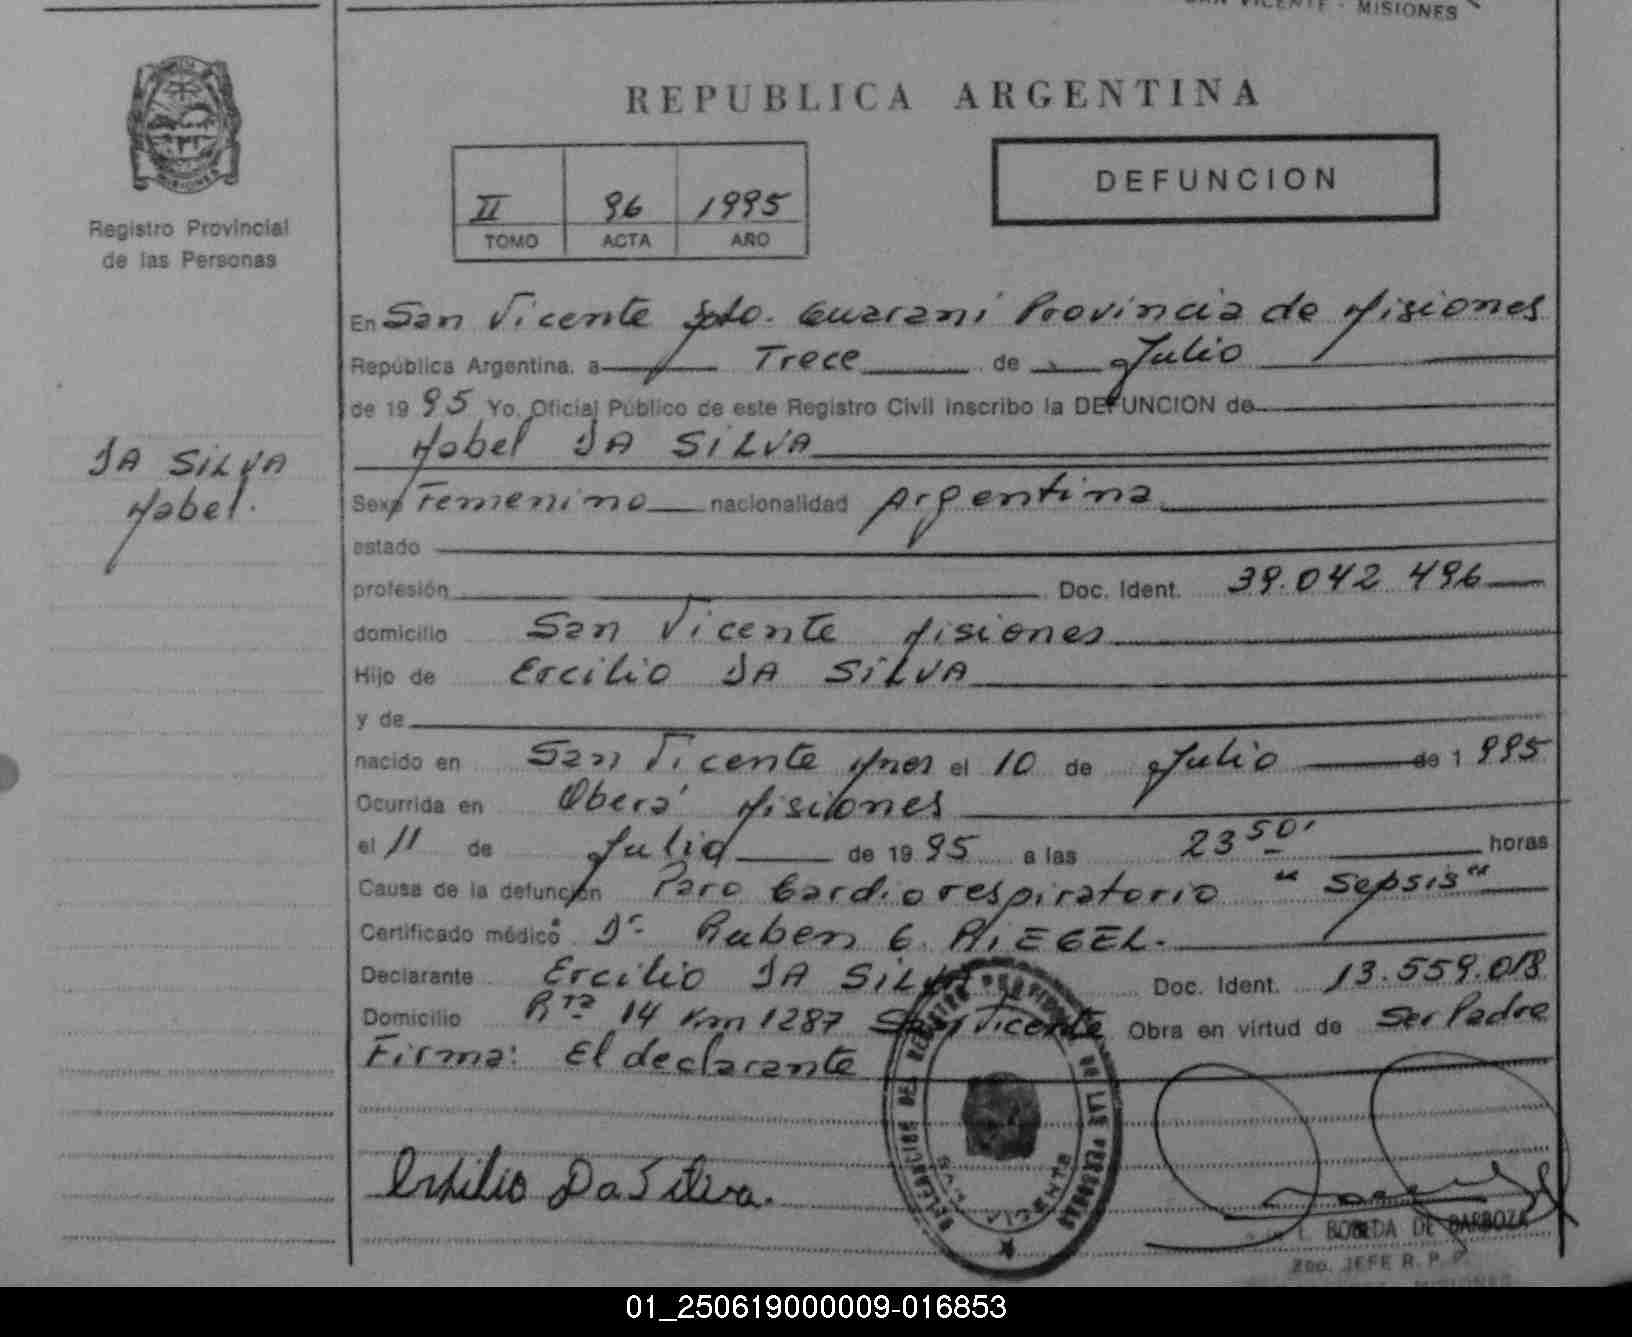 SAN VICENTE - MISIONES
MISIONES
Registro Provincial
de las Personas
REPUBLICA ARGENTINA
II 96 1995
TOMO ACTA AÑO
DEFUNCION
DA SILVA
Mabel.
En San Vicente Dpto. Guaraní Provincia de Misiones
República Argentina, a Trece de Julio
de 19 95 Yo, Oficial Público de este Registro Civil inscribo la DEFUNCION de
Mabel DA SILVA
Sexo Femenino nacionalidad Argentina
estado
profesión Doc. Ident. 39.042.496
domicilio San Vicente Misiones
Hijo de Ercilio DA SILVA
y de
nacido en San Vicente Mnes el 10 de Julio de 1 995
Ocurrida en Oberá Misiones
el 11 de Julio de 19 95 a las 23 50' horas
Causa de la defunción Paro Cardiorespiratorio "Sepsis"
Certificado médico Dr. Ruben G. RIEGEL.
Declarante Ercilio DA SILVA Doc. Ident. 13.559.018
Domicilio Rta 14 Km 1287 San Vicente Obra en virtud de Ser Padre
Firma: El declarante
DELEGACION DEL REGISTRO PROVINCIAL DE LAS PERSONAS
Da Silva.
BOBEDA DE BARBOZA
2do. JEFE R. P. P.
MISIONES
01_250619000009-016853